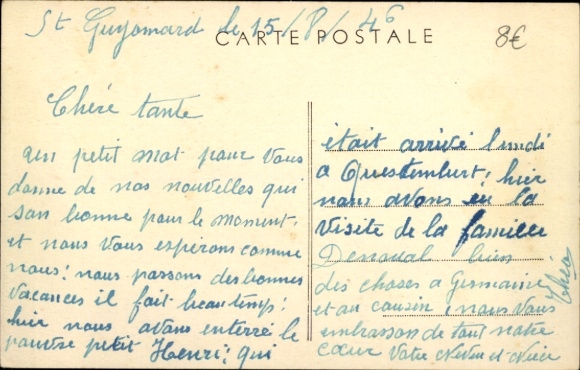 St Guyomard le 15/8/46
CARTE POSTALE
8€
Chére tante
un petit mot pour vous
donne de nos nouvelles qui
son bonne pour le moment
et nous vous espérons comme
nous! nous passons des bonnes
vacances il fait beau temps!
hier nous avons enterré le
pauvre petit Henri; qui
était arrivé lundi
a Questembert; hier
nous avons eu la
visite de la famille
Denoual bien
des choses a Germaine
et au cousin, nous vous
embrasson de tout notre
cœur votre Neveu et Nièce